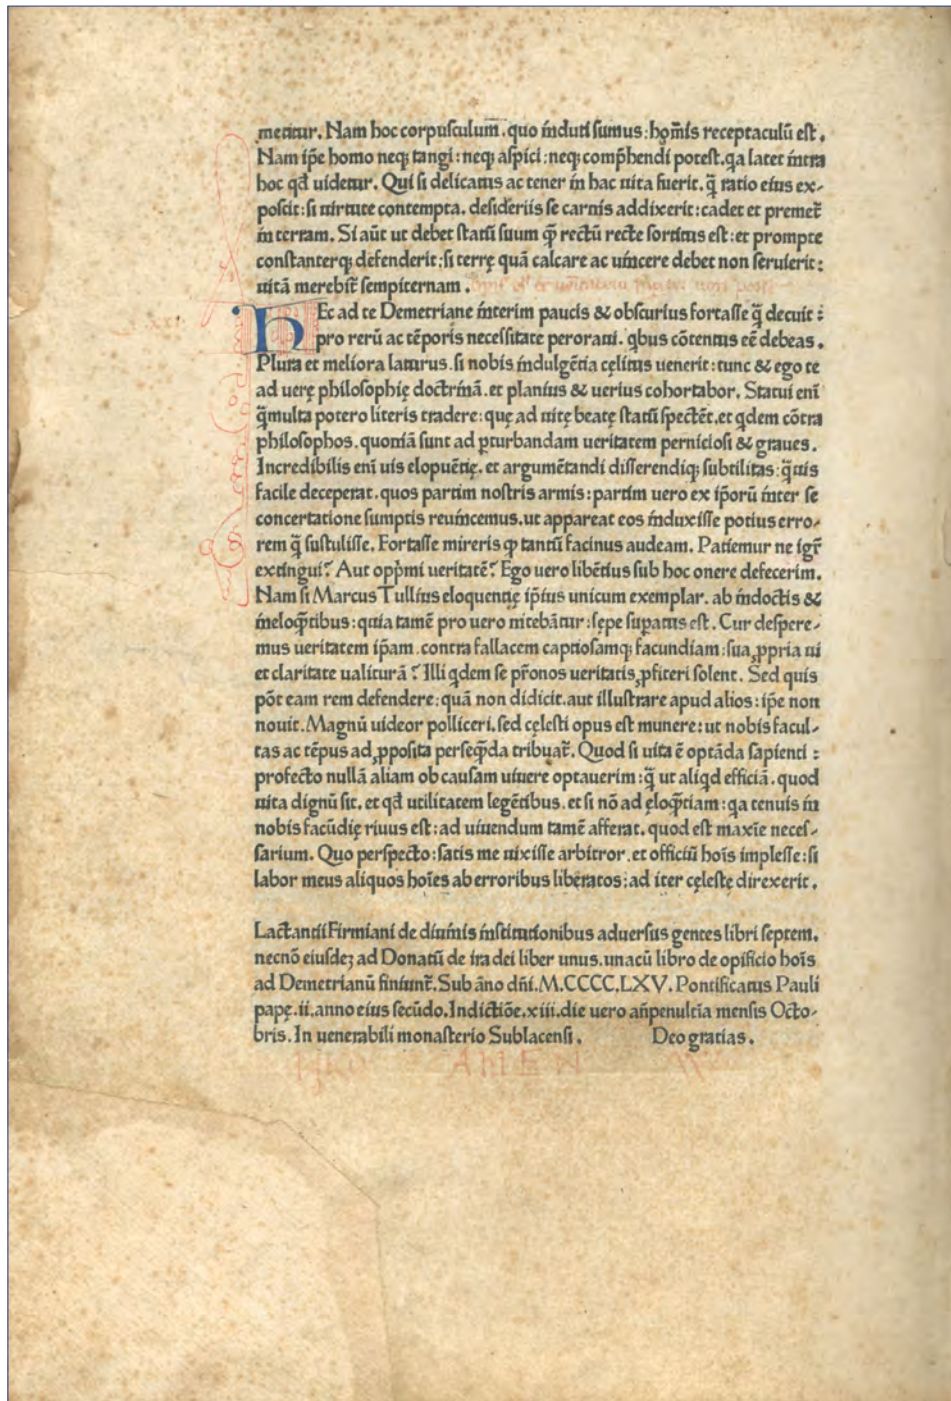 metitur. Nam hoc corpusculum̄. quo induti sumus: hoīnis receptaculū est.
Nam ip̄e homo neq; tangi: neq; aspici: neq; comp̄hendi potest. qa latet intra
hoc qd̄ uidetur. Qui si delicatus ac tener in hac uita fuerit. q̄ ratio eius ex-
poscit: si uirtute contempta. desideriis se carnis addixerit: cadet et premet̄
in terram. Si aūt ut debet statū suum qͣ rectū recte sortitus est: et prompte
constanterq; defenderit: si terrę quā calcare ac uincere debet non seruierit:
uitā merebit̄ sempiternam.
HEc ad te Demetriane interim paucis & obscurius fortasse q̄ decuit:
pro rerū ac tēporis necessitate peroraui. qbus cōtentus eē debeas.
Plura et meliora laturus. si nobis indulgētia cęlitus uenerit: tunc & ego te
ad uerę philosophię doctrinā. et planius & uerius cohortabor. Statui enī
q̄multa potero literis tradere: quę ad uitę beatę statū spectēt. et qdem cōtra
philosophos. quoniā sunt ad ꝑturbandam ueritatem perniciosi & graues.
Incredibilis enī uis elopuētię. et argumētandi disserendiq; subtilitas: q̄uis
facile deceperat. quos partim nostris armis: partim uero ex ip̄orū inter se
concertatione sumptis reuincemus. ut appareat eos induxisse potius erro-
rem q̄ sustulisse. Fortasse mireris ꝙ tantū facinus audeam. Patiemur ne igr̄
extingui? Aut opp̄mi ueritatē? Ego uero libētius sub hoc onere defecerim.
Nam si Marcus Tullius eloquentię ip̄ius unicum exemplar. ab indoctis &
ineloq̄tibus: quia tamē pro uero nitebātur: sępe suꝑatus est. Cur despere-
mus ueritatem ip̄am. contra fallacem captiosamq; facundiam: sua ꝓpria ui
et claritate ualiturā? Illi qdem se pr̄onos ueritatis ꝓfiteri solent. Sed quis
pōt eam rem defendere: quā non didicit. aut illustrare apud alios: ip̄e non
nouit. Magnū uideor polliceri. sed cęlesti opus est munere: ut nobis facul-
tas ac tēpus ad ꝓposita perseq̄da tribuat̄. Quod si uita ē optāda sapienti:
profecto nullā aliam ob causam uiuere optauerim: q̄ ut aliqd efficiā. quod
uita dignū sit. et qd̄ utilitatem legētibus. et si nō ad ęloq̄tiam: qa tenuis in
nobis facūdię riuus est: ad uiuendum tamē afferat. quod est maxīe neces-
sarium. Quo perspecto: satis me uixisse arbitror. et officiū hoīs implesse: si
labor meus aliquos hoīes ab erroribus liberatos: ad iter cęlestę direxerit.
Lactantii Firmiani de diuinis institutionibus aduersus gentes libri septem.
necnō eiusdeꝫ ad Donatū de ira dei liber unus. unacū libro de opificio hoīs
ad Demetrianū finiunt̄. Sub āno dn̄i. M.CCCC.LXV. Pontificatus Pauli
papę. ii. anno eius secūdo. Indictiōe. xiii. die uero an̄penultīa mensis Octo-
bris. In uenerabili monasterio Sublacensi. Deo gratias.
AMEN